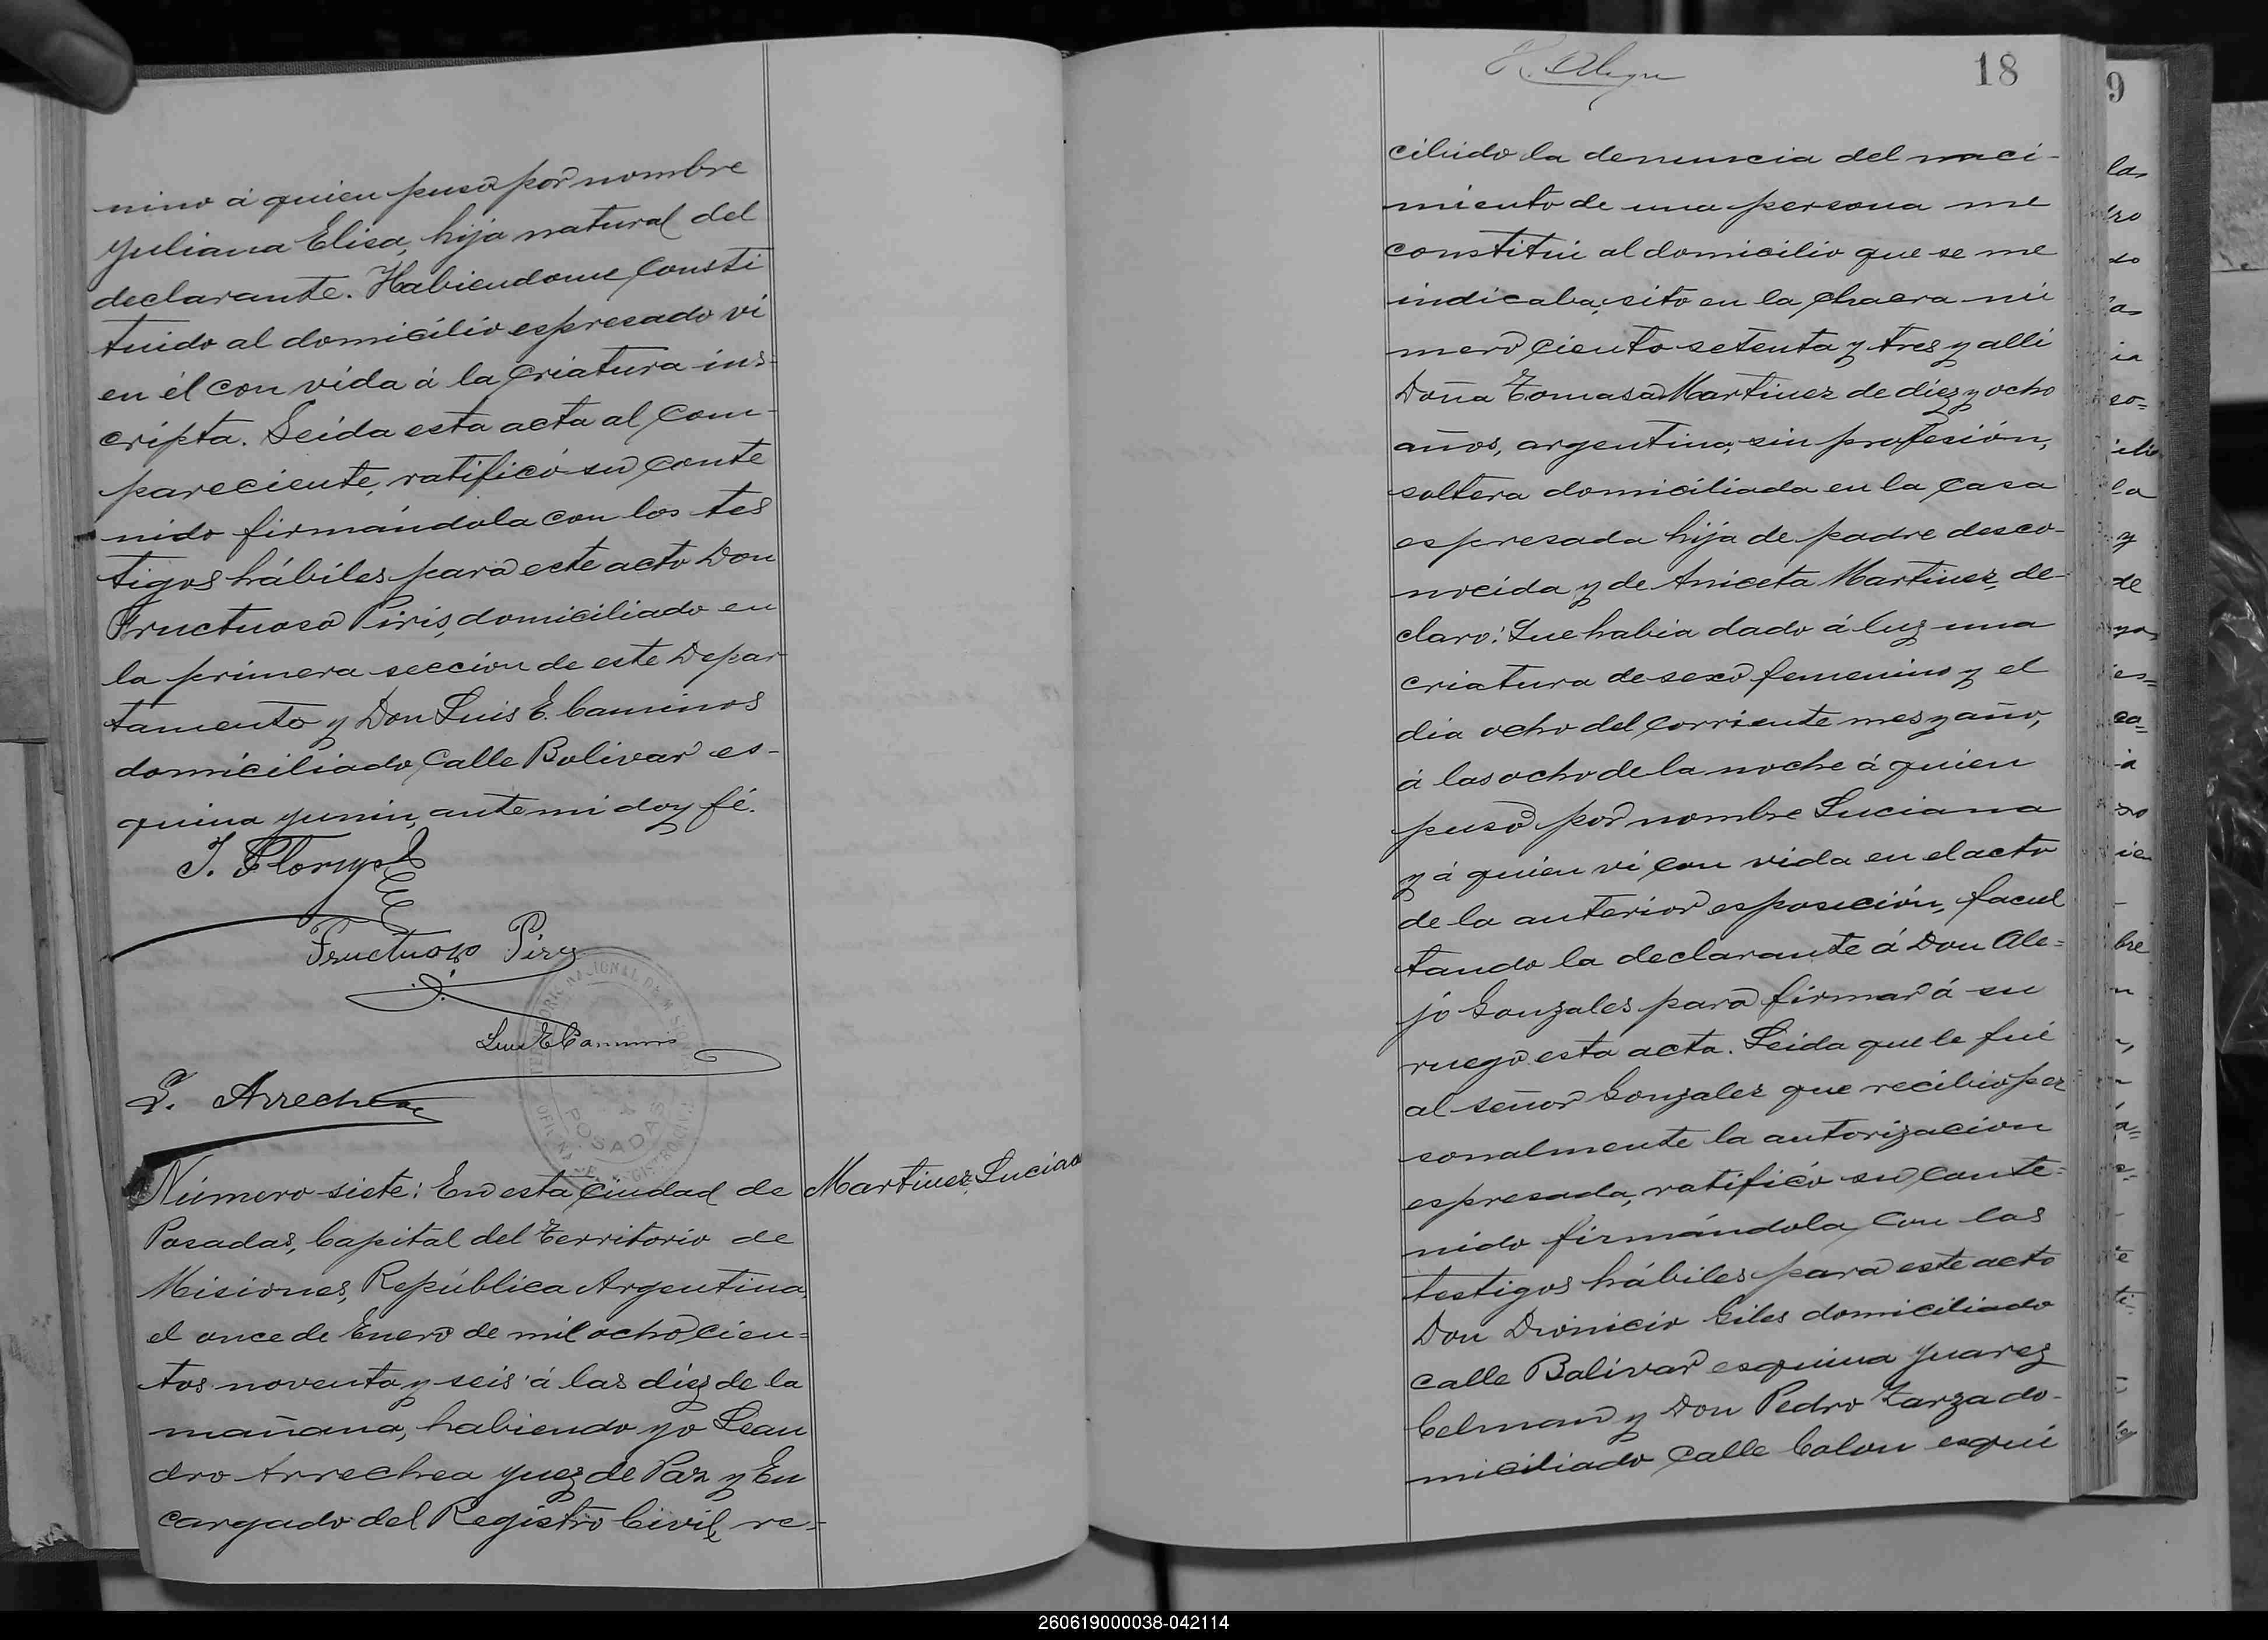 nino á quien puso por nombre
Yuliana Elisa, hija natural del
declarante. Habiendome consti
tuido al domicilio espresado vi
en él con vida á la criatura ins-
cripta. Leida esta acta al com-
pareciente, ratificó su conte
nido firmándola con los tes
tigos hábiles para este acto Don
Fructuoso Piris, domiciliado en
la primera seccion de este Depar
tamento y Don Luis E. Caminos
domiciliado calle Bolivar es-
quina Yunin, ante mi doy fé.
Fructuoso Piris
Luis E Caminos
L. Arrechea
POSADAS
Número siete: En esta ciudad de
Martinez, Luciana
Posadas, Capital del Territorio de
Misiones, República Argentina,
el once de Enero de mil ochocien=
tos noventa y seis á las diez de la
mañana, habiendo yo Lean
dro Arrechea Yuez de Paz y En
cargado del Registro Civil, re=
18
cibido la denuncia del naci-
miento de una persona me
constitui al domicilio que se me
indicaba, sito en la chacra nú
mero ciento setenta y tres y alli
Doña Tomasa Martinez de diez y ocho
años, argentina, sin profesión,
soltera domiciliada en la casa
espresada hija de padre desco-
nocida y de Aniceta Martinez, de-
claró: Que habia dado á luz una
criatura de sexo femenino y el
dia ocho del corriente mes y año,
á las ocho de la noche á quien
puso por nombre Luciana
y á quien vi con vida en el acto
de la anterior esposición, facul
tando la declarante á Don Ale=
jo Gonzales para firmar á su
ruego esta acta. Leida que le fué
al señor Gonzalez que recibió per
sonalmente la autorizacion
espresada, ratificó su conte=
nido firmándola con los
testigos hábiles para este acto
Don Dionicio Giles domiciliado
calle Bolivar esquina Yuarez
Celman y Don Pedro Zarza do-
miciliado calle Colon esqui
260619000038-042114